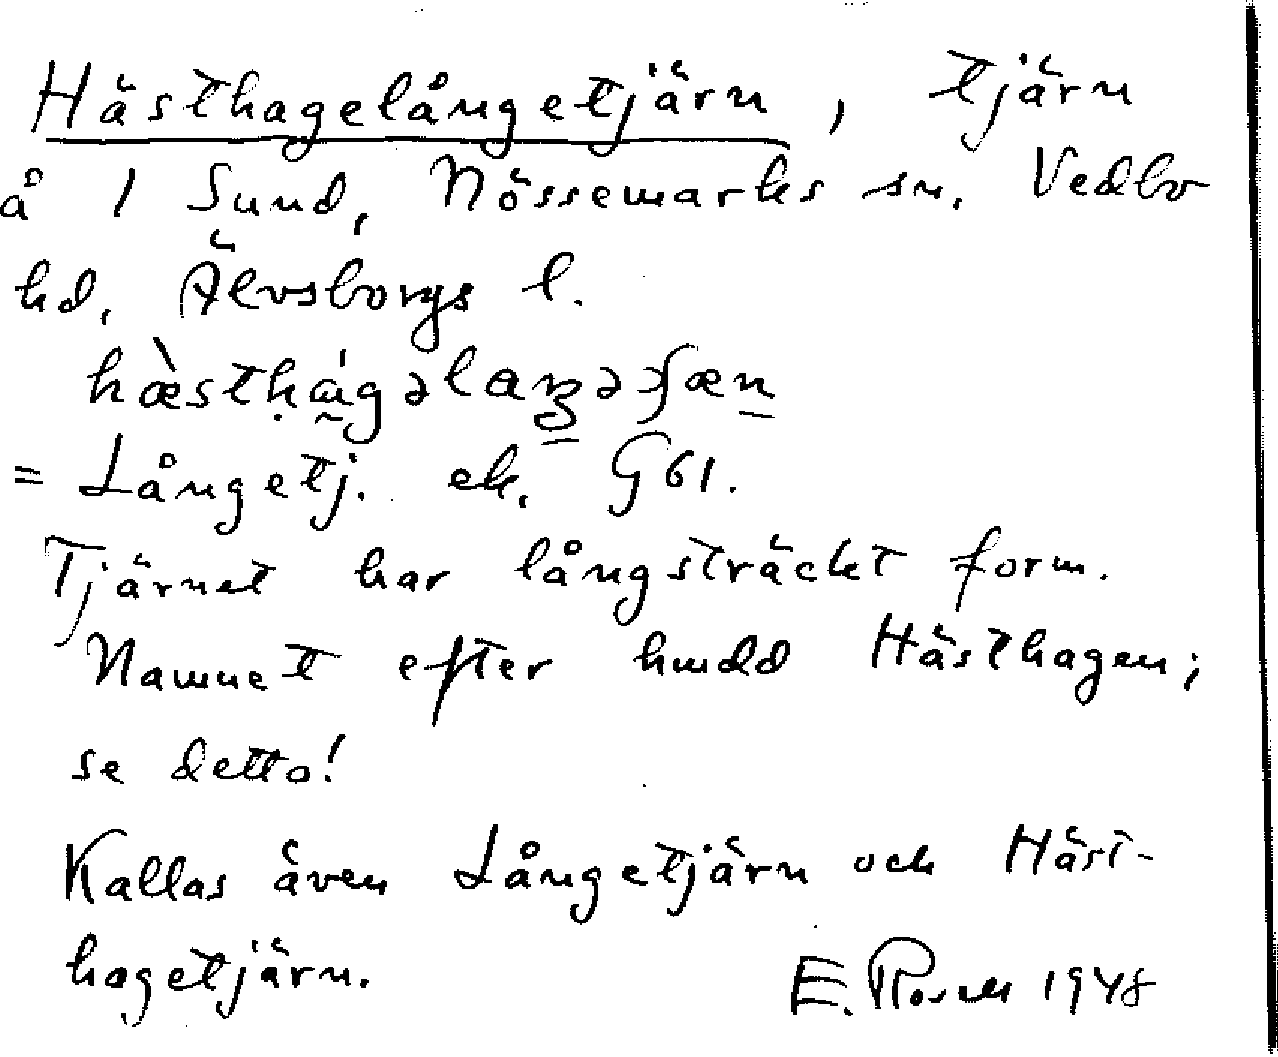 Hästhagelångetjärn, tjärn
å 1 Sund, Nössemarks sn. Vedbo
hd, Älvsborgs l.
= Långetj. ek. G 61.
Tjärnet har långsträckt form.
Namnet efter hmdd Hästhagen;
se detta!
Kallas även Långetjärn och Häst-
hagetjärn. E. Rosell 1948